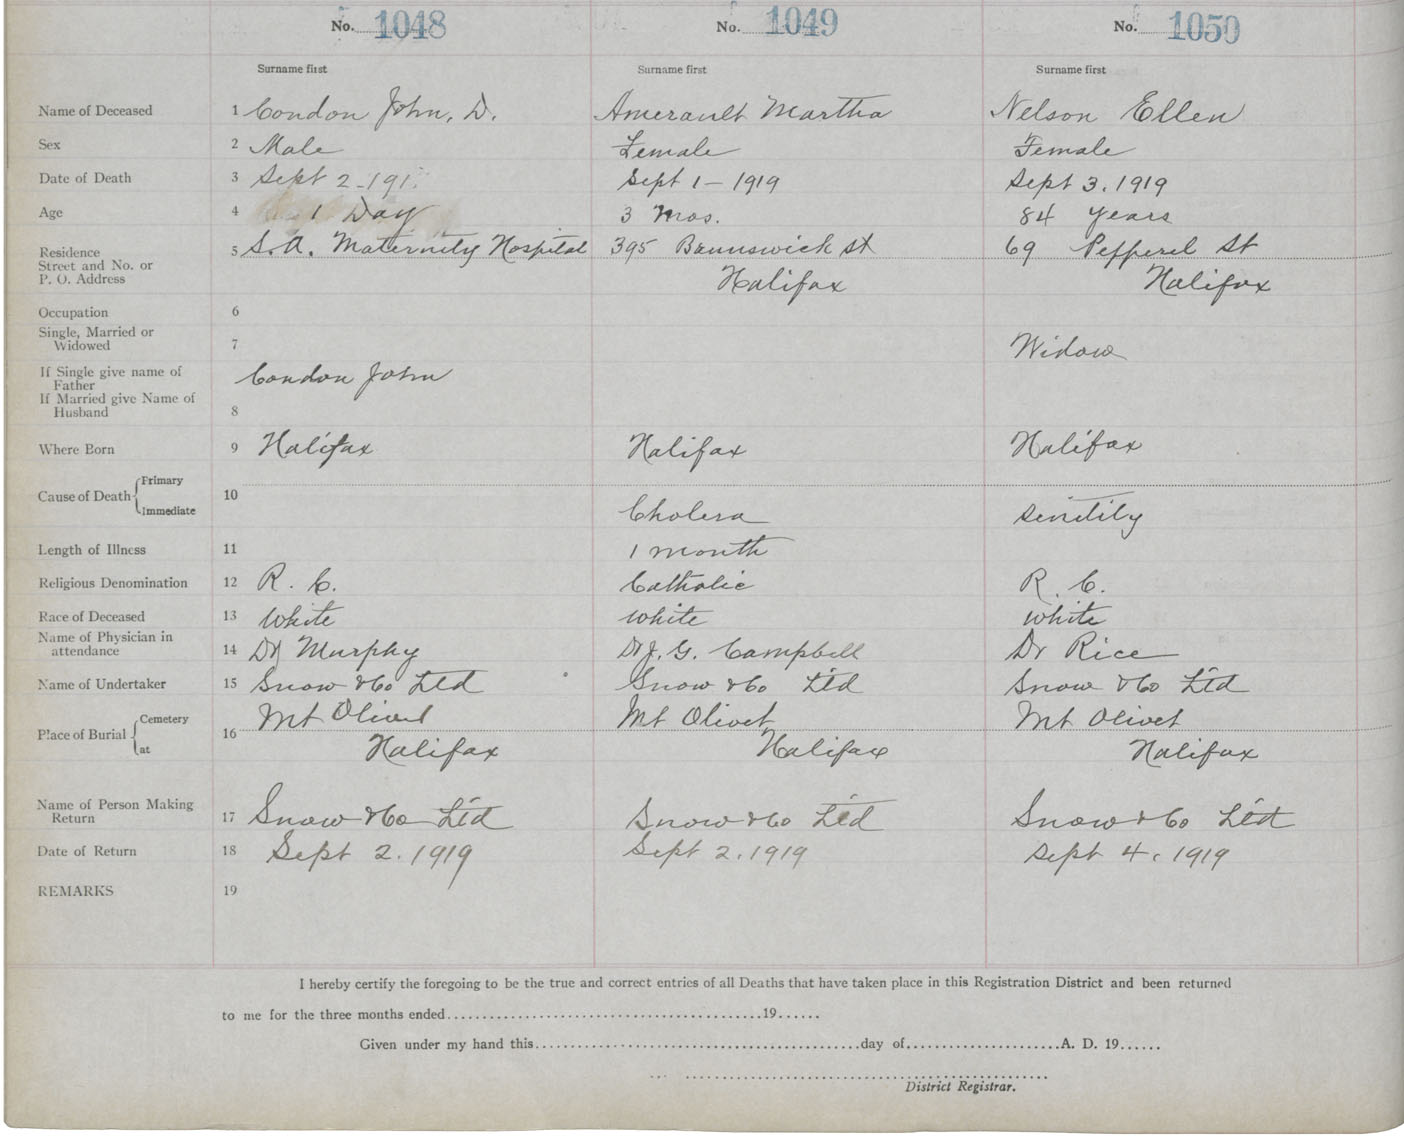 No. 1048 No. 1049 No. 1050
Surname first Surname first Surname first
Name of Deceased 1 Condon John, D. Amerault Martha Nelson Ellen
Sex 2 Male Female Female
Date of Death 3 Sept 2-191 Sept 1-1919 Sept 3, 1919
Age 4 1 Day 3 Mos. 84 years
Residence
Street and No. or
P. O. Address 5 S.A. Maternity Hospital 395 Brunswick St 69 Pepperel St
Halifax Halifax
Occupation 6
Single, Married or
Widowed 7 Widow
If Single give name of
Father Condon John
If Married give Name of
Husband 8
Where Born 9 Halifax Halifax Halifax
Cause of Death Primary
10
Immediate Cholera senitily
Length of Illness 11 1 month
Religious Denomination 12 R. C. Catholic R. C.
Race of Deceased 13 White white white
Name of Physician in
attendance 14 Dr Murphy Dr J. G. Campbell Dr Rice
Name of Undertaker 15 Snow & Co Ltd Snow & Co Ltd Snow & Co Ltd
Place of Burial Cemetery 16 Mt Olivet Mt Olivet Mt Olivet
at Halifax Halifax Halifax
Name of Person Making
Return 17 Snow & Co Ltd Snow & Co Ltd Snow & Co Ltd
Date of Return 18 Sept 2, 1919 Sept 2, 1919 Sept 4, 1919
REMARKS 19
I hereby certify the foregoing to be the true and correct entries of all Deaths that have taken place in this Registration District and been returned
to me for the three months ended 19
Given under my hand this day of A. D. 19
District Registrar.